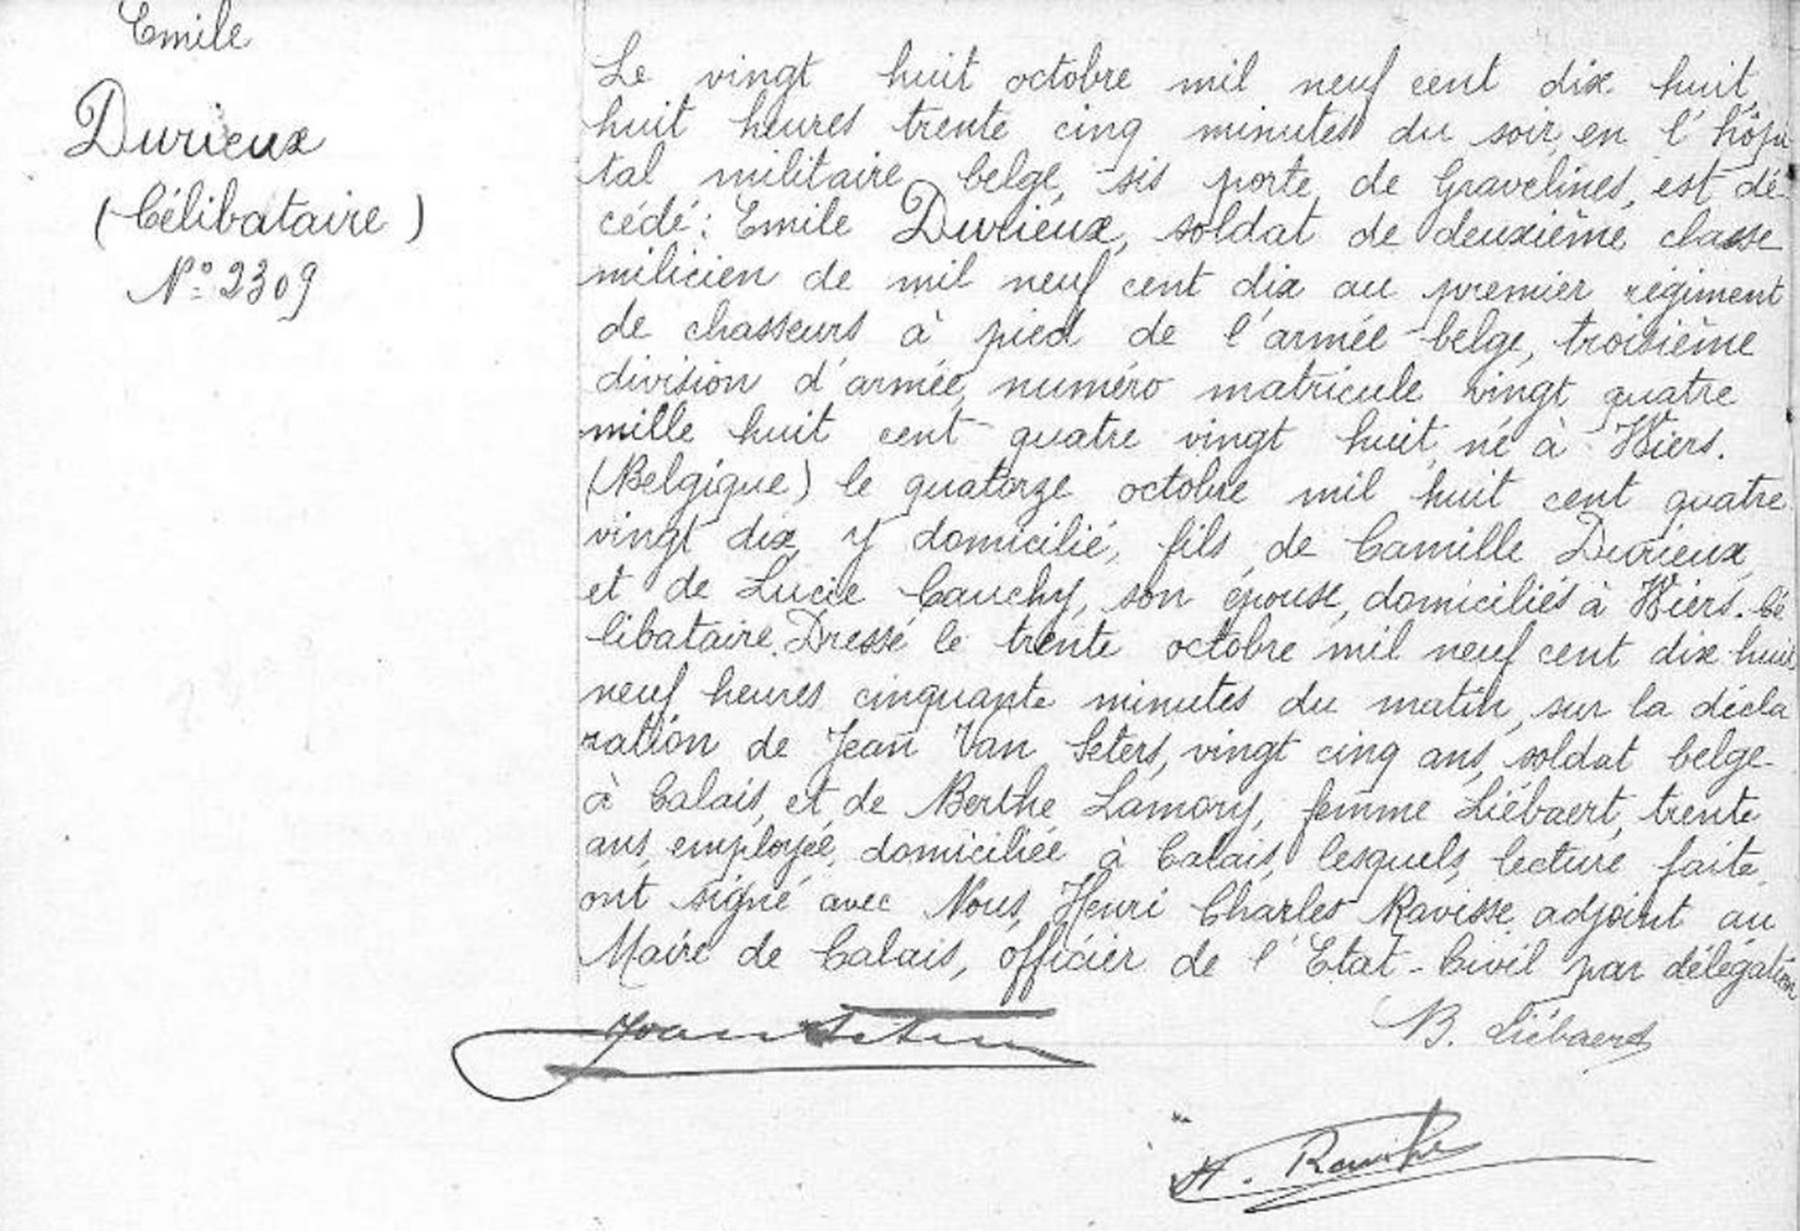 Emile
Durieux
(Célibataire)
N° 2309
Le vingt huit octobre mil neuf cent dix huit,
huit heures trente cinq minutes du soir, en l'hôpi
tal militaire belge, sis porte de Gravelines, est dé-
cédé : Emile Durieux, soldat de deuxième classe
milicien de mil neuf cent dix au premier régiment
de chasseurs à pied de l'armée belge, troisième
division d'armée, numéro matricule vingt quatre
mille huit cent quatre vingt huit, né à Wiers.
(Belgique) le quatorze octobre mil huit cent quatre
vingt dix, y domicilié, fils de Camille Durieux,
et de Lucie Cauchy, son épouse, domiciliés à Wiers. Cé
libataire. Dressé le trente octobre mil neuf cent dix huit
neuf heures cinquante minutes du matin, sur la décla
ration de Jean Van Seters, vingt cinq ans, soldat belge
à Calais, et de Berthe Lamory, femme Liébaert, trente
ans, employée, domiciliée à Calais, lesquels, lecture faite,
ont signé avec Nous, Henri Charles Ravisse, adjoint au
Maire de Calais, officier de l'Etat-Civil par délégation
B. Liébaert
H. Ravisse